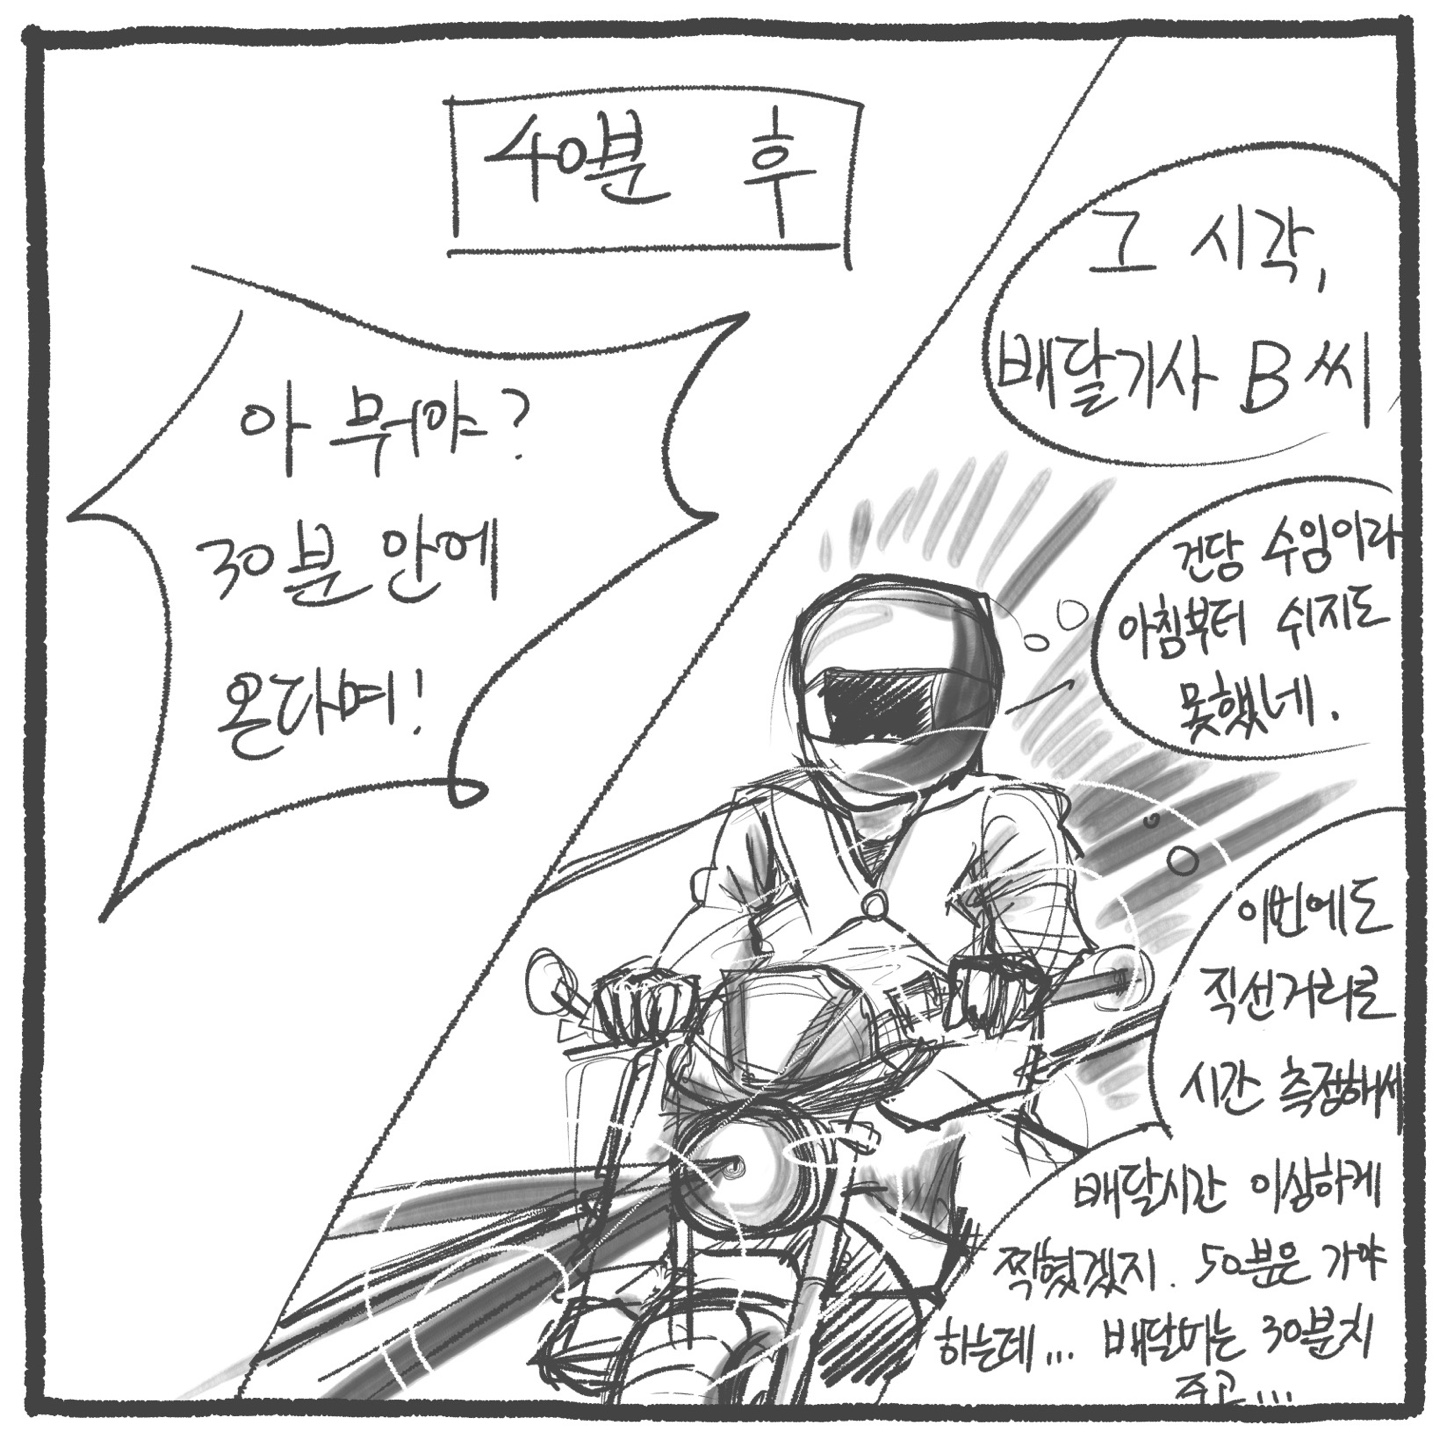 40분 후
아 뭐야?
30분 안에
온다며!
그 시각,
배달기사 B씨
건당 수임이라
아침부터 쉬지도
못했네.
이번에도
직선거리로
시간 측정해서
배달시간 이상하게
찍혔겠지. 50분은 가야
하는데... 배달비는 30분치
주고...